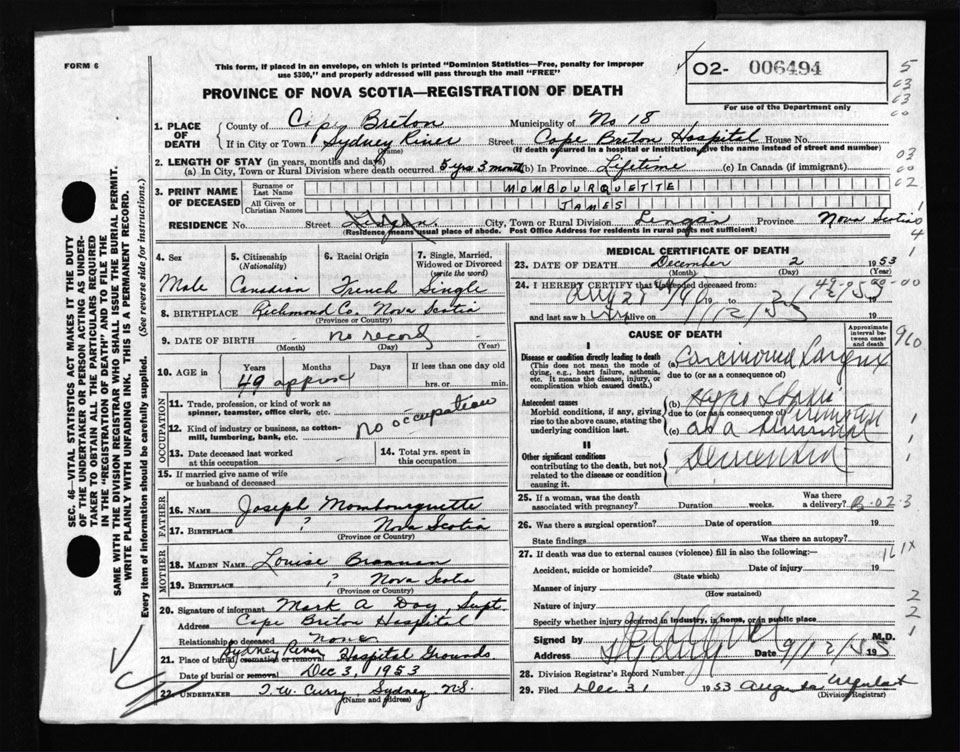 FORM 6
This form, if placed in an envelope, on which is printed "Dominion Statistics—Free, penalty for improper
use $300," and properly addressed will pass through the mail "FREE"
02- 006494
For use of the Department only
PROVINCE OF NOVA SCOTIA—REGISTRATION OF DEATH
1. PLACE OF DEATH
County of Cape Breton Municipality of No 18
If in City or Town Sydney River Street Cape Breton Hospital House No.
(Name) (If death occurred in a hospital or institution, give the name instead of street and number)
2. LENGTH OF STAY (in years, months and days)
(a) In City, Town or Rural Division where death occurred 5 yrs 3 months (b) In Province Lifetime (c) In Canada (if immigrant)
3. PRINT NAME OF DECEASED
Surname or Last Name MOMBOURQUETTE
All Given or Christian Names JAMES
RESIDENCE No. Street City, Town or Rural Division Lingan Province Nova Scotia
(Residence means usual place of abode. Post Office Address for residents in rural parts not sufficient)
4. Sex
Male
5. Citizenship
(Nationality)
Canadian
6. Racial Origin
French
7. Single, Married,
Widowed or Divorced
(write the word)
Single
8. BIRTHPLACE Richmond Co. Nova Scotia
(Province or Country)
9. DATE OF BIRTH no record
(Month) (Day) (Year)
10. AGE in Years Months Days If less than one day old
49 approx hrs. or min.
OCCUPATION
11. Trade, profession, or kind of work as
spinner, teamster, office clerk, etc.
12. Kind of industry or business, as cotton-
mill, lumbering, bank, etc.
no occupation
13. Date deceased last worked
at this occupation
14. Total yrs. spent in
this occupation
15. If married give name of wife
or husband of deceased
FATHER
16. NAME Joseph Mombourquette
17. BIRTHPLACE ? Nova Scotia
(Province or Country)
MOTHER
18. MAIDEN NAME Louise Brannan
19. BIRTHPLACE ? Nova Scotia
(Province or Country)
20. Signature of informant Mark A Day, Supt.
Address Cape Breton Hospital
Relationship to deceased None
21. Place of burial cremation or removal Sydney River Hospital Grounds
Date of burial or removal Dec 3, 1953
22. UNDERTAKER T. W. Curry Sydney N.S.
(Name and Address)
MEDICAL CERTIFICATE OF DEATH
23. DATE OF DEATH December 2 1953
(Month) (Day) (Year)
24. I HEREBY CERTIFY that I attended deceased from:
Aug 28 19 to
and last saw h alive on
CAUSE OF DEATH
Approximate
interval between
onset and
death
I
Disease or condition directly leading to death
(This does not mean the mode of
dying, e.g., heart failure, asthenia,
etc. It means the disease, injury, or
complication which caused death.)
(a) Carcinoma Larynx
due to (or as a consequence of)
Antecedent causes
Morbid conditions, if any, giving
rise to the above cause, stating the
underlying condition last.
(b)
due to (or as a consequence of)
(c) as a terminal
II
Other significant conditions
contributing to the death, but not
related to the disease or condition
causing it.
25. If a woman, was the death
associated with pregnancy? Duration weeks. Was there
a delivery?
26. Was there a surgical operation? Date of operation 19
State findings Was there an autopsy?
27. If death was due to external causes (violence) fill in also the following:—
Accident, suicide or homicide? Date of injury 19
(State which)
Manner of injury
(How sustained)
Nature of injury
Specify whether injury occurred in industry, in home, or in public place
Signed by M.D.
Address Sydney Date 19
28. Division Registrar's Record Number
29. Filed Dec 31 1953
(Division Registrar)
SEC. 46—VITAL STATISTICS ACT MAKES IT THE DUTY
OF THE UNDERTAKER OR PERSON ACTING AS UNDER-
TAKER TO OBTAIN ALL THE PARTICULARS REQUIRED
IN THE "REGISTRATION OF DEATH" AND TO FILE THE
SAME WITH THE DIVISION REGISTRAR WHO SHALL ISSUE THE BURIAL PERMIT.
WRITE PLAINLY WITH UNFADING INK. THIS IS A PERMANENT RECORD.
Every item of information should be carefully supplied. (See reverse side for instructions.)